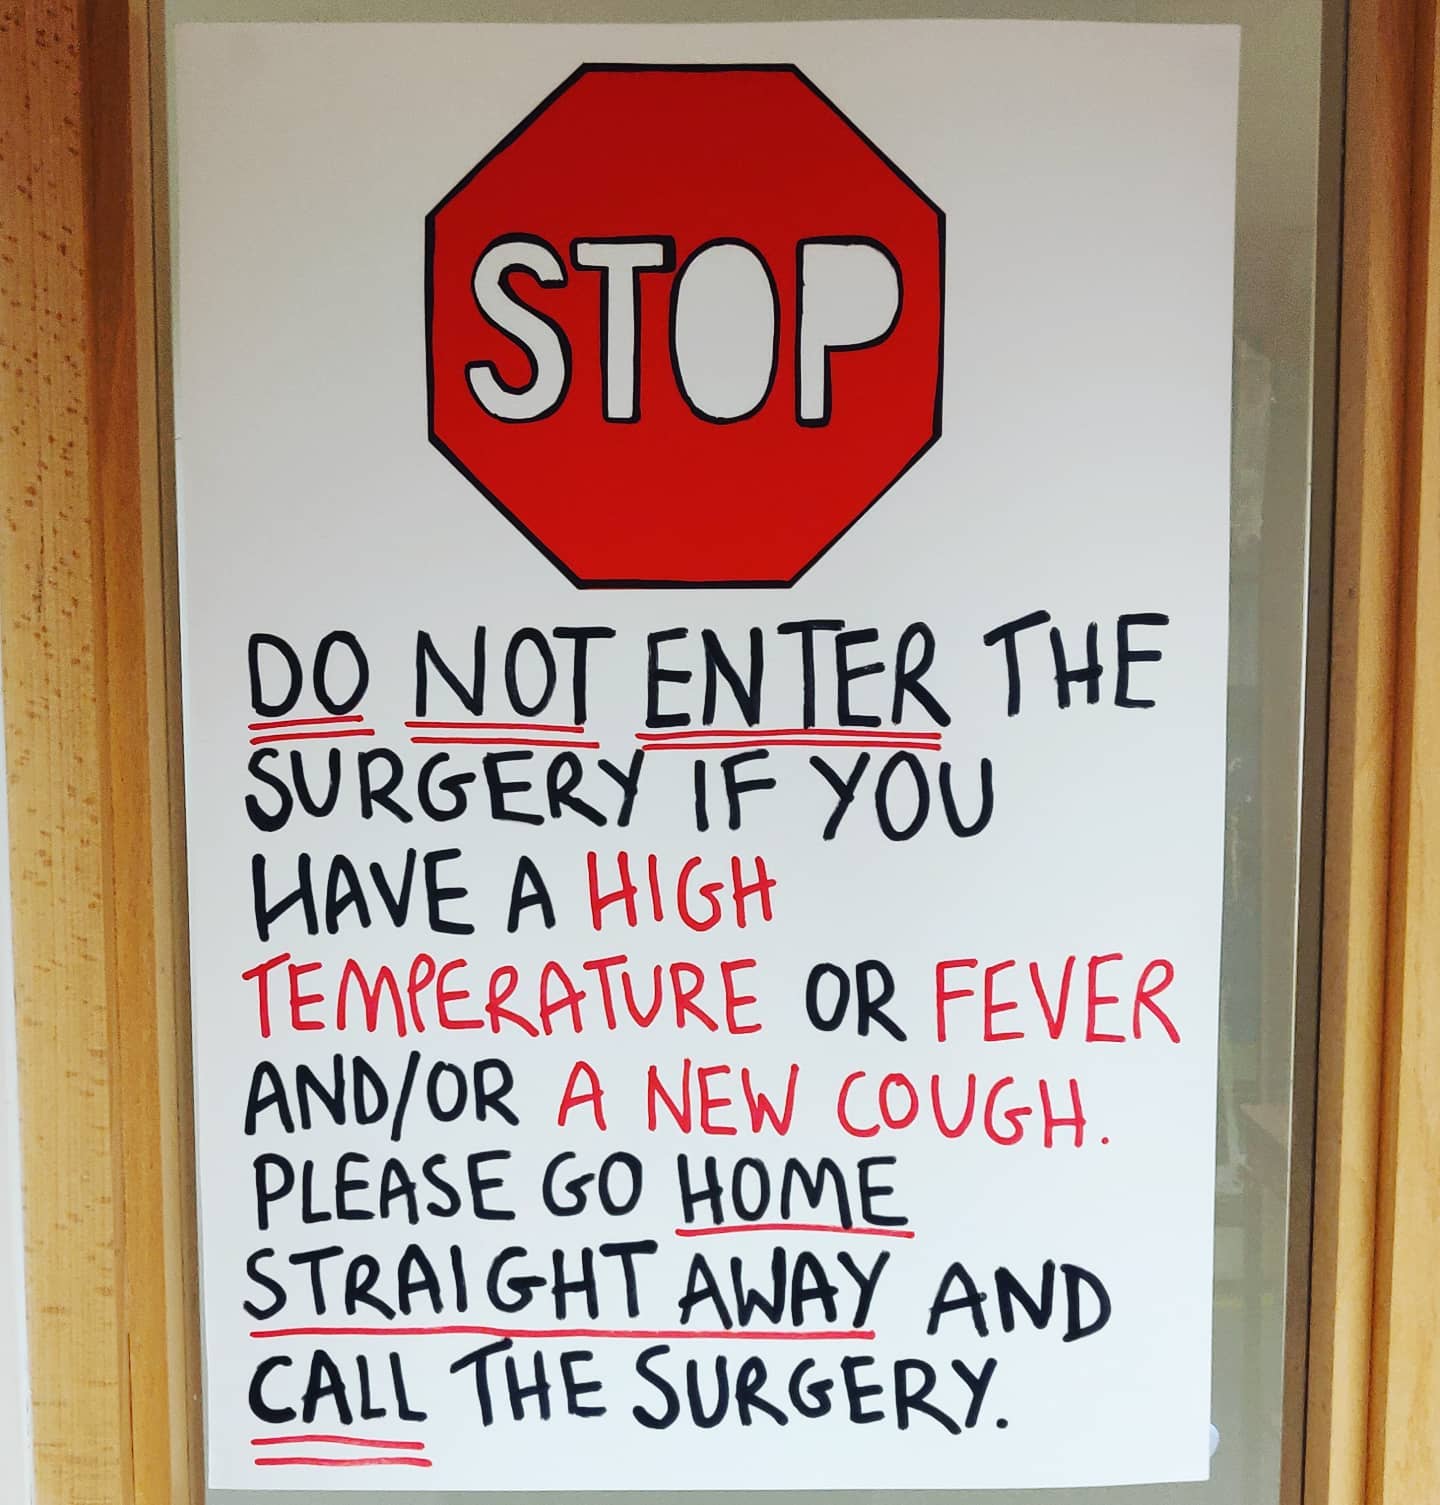 STOP
DO NOT ENTER THE
SURGERY IF YOU
HAVE A HIGH
TEMPERATURE OR FEVER
AND/OR A NEW COUGH.
PLEASE GO HOME
STRAIGHT AWAY AND
CALL THE SURGERY.